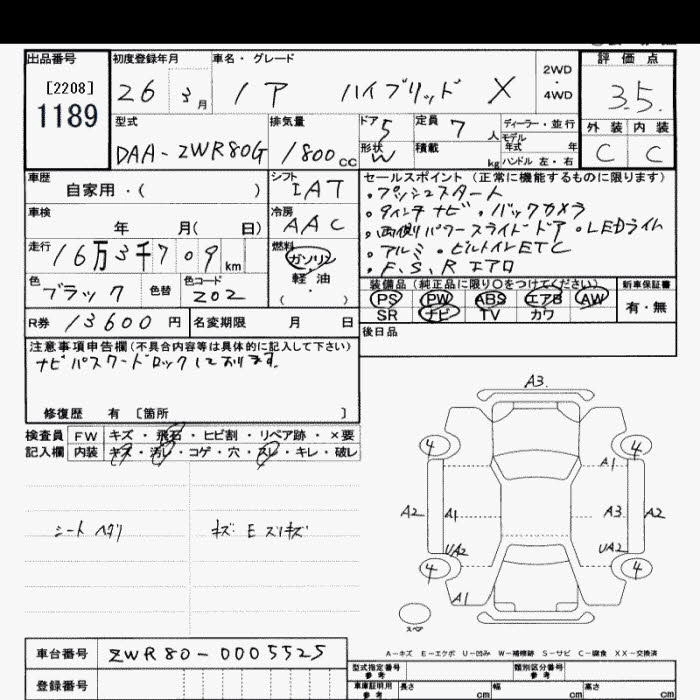 出品番号
初度登録年月
車名・グレード
2WD
・
4WD
評価点
[2208]
1189
26 3月
ノア ハイブリッド X
3.5
外装 内装
C C
型式
DAA-ZWR80G
排気量
1800cc
ドア 5
定員 7人
形状 W
積載 kg
ディーラー・並行
モデル
年式 年
ハンドル 左・右
車歴
自家用・( )
シフト
IAT
車検
年 月( 日)
冷房
AAC
走行
16万3千709km
燃料
ガソリン
・
軽油
( )
色
ブラック
色替
色コード
202
R券 13600円
名変期限 月 日
セールスポイント(正常に機能するものに限ります)
・プッシュスタート
・9インチナビ・バックカメラ
・両側パワースライドドア・LEDライム
・アルミ・ビルトインETC
・F、S、R エアロ
装備品(純正品に限り○をつけてください)
新車保証書
PS PW ABS エアB AW
SR ナビ TV カワ
有・無
後日品
注意事項申告欄(不具合内容等は具体的に記入して下さい)
ナビパスワードロックしております。
修復歴 有 [箇所 ]
検査員
記入欄
FW キズ・飛石・ヒビ割・リペア跡・×要
内装 キズ・汚レ・コゲ・穴・スレ・キレ・破レ
シート ヘタリ
キズ E スリキズ
A3
4 4
A1
A2 A1 A3 A2
UA2 UA2
4 4
A1
スペア
A-キズ E-エクボ U-凹み W-補修跡 S-サビ C-腐食 XX-交換済
車台番号 ZWR80-0005525
登録番号
型式指定番号
参考
類別区分番号
参考
車庫証明用
参考
長さ cm 幅 cm 高さ cm